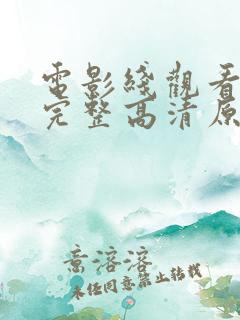 電影綫觀看
完整高清原
意溶溶
未经同意禁止转载